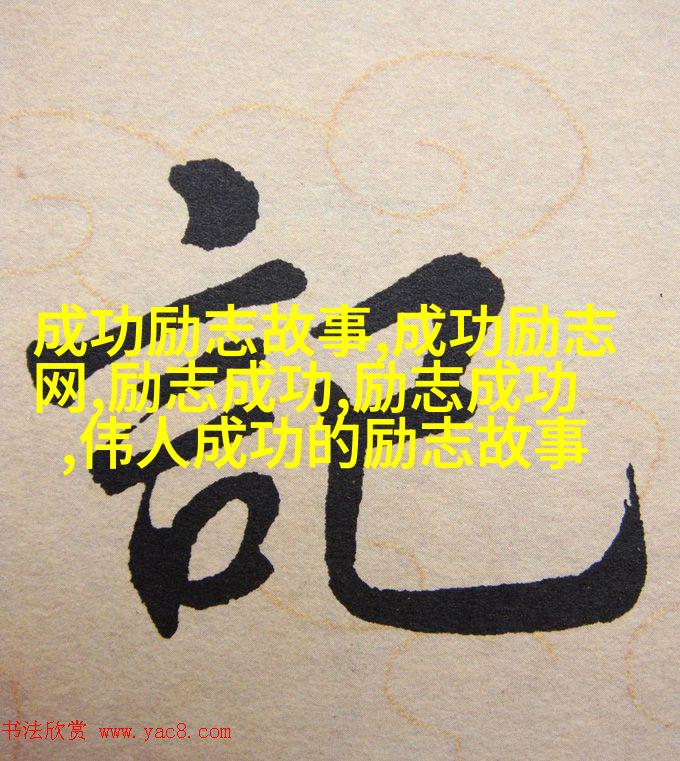 記
成功励志故事,成功励志
网,励志成功,励志成功
,伟人成功的励志故事
书法欣赏 www.yac8.com